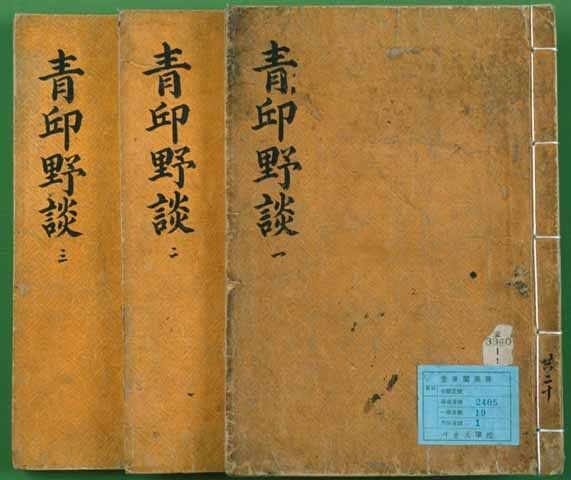 青邱野談
三
青邱野談
二
青邱野談
一
3340
1
1
奎章閣圖書
2405
19
1
서울大學校
共二十